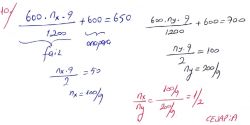 10)
600.nx.9 / 1200 + 600 = 650
nx.9 / 2 = 50
nx = 100/9
600.ny.9 / 1200 + 600 = 700
ny.9 / 2 = 100
ny = 200/9
nx / ny = 100/9 / 200/9 = 1/2
CEVAP:A